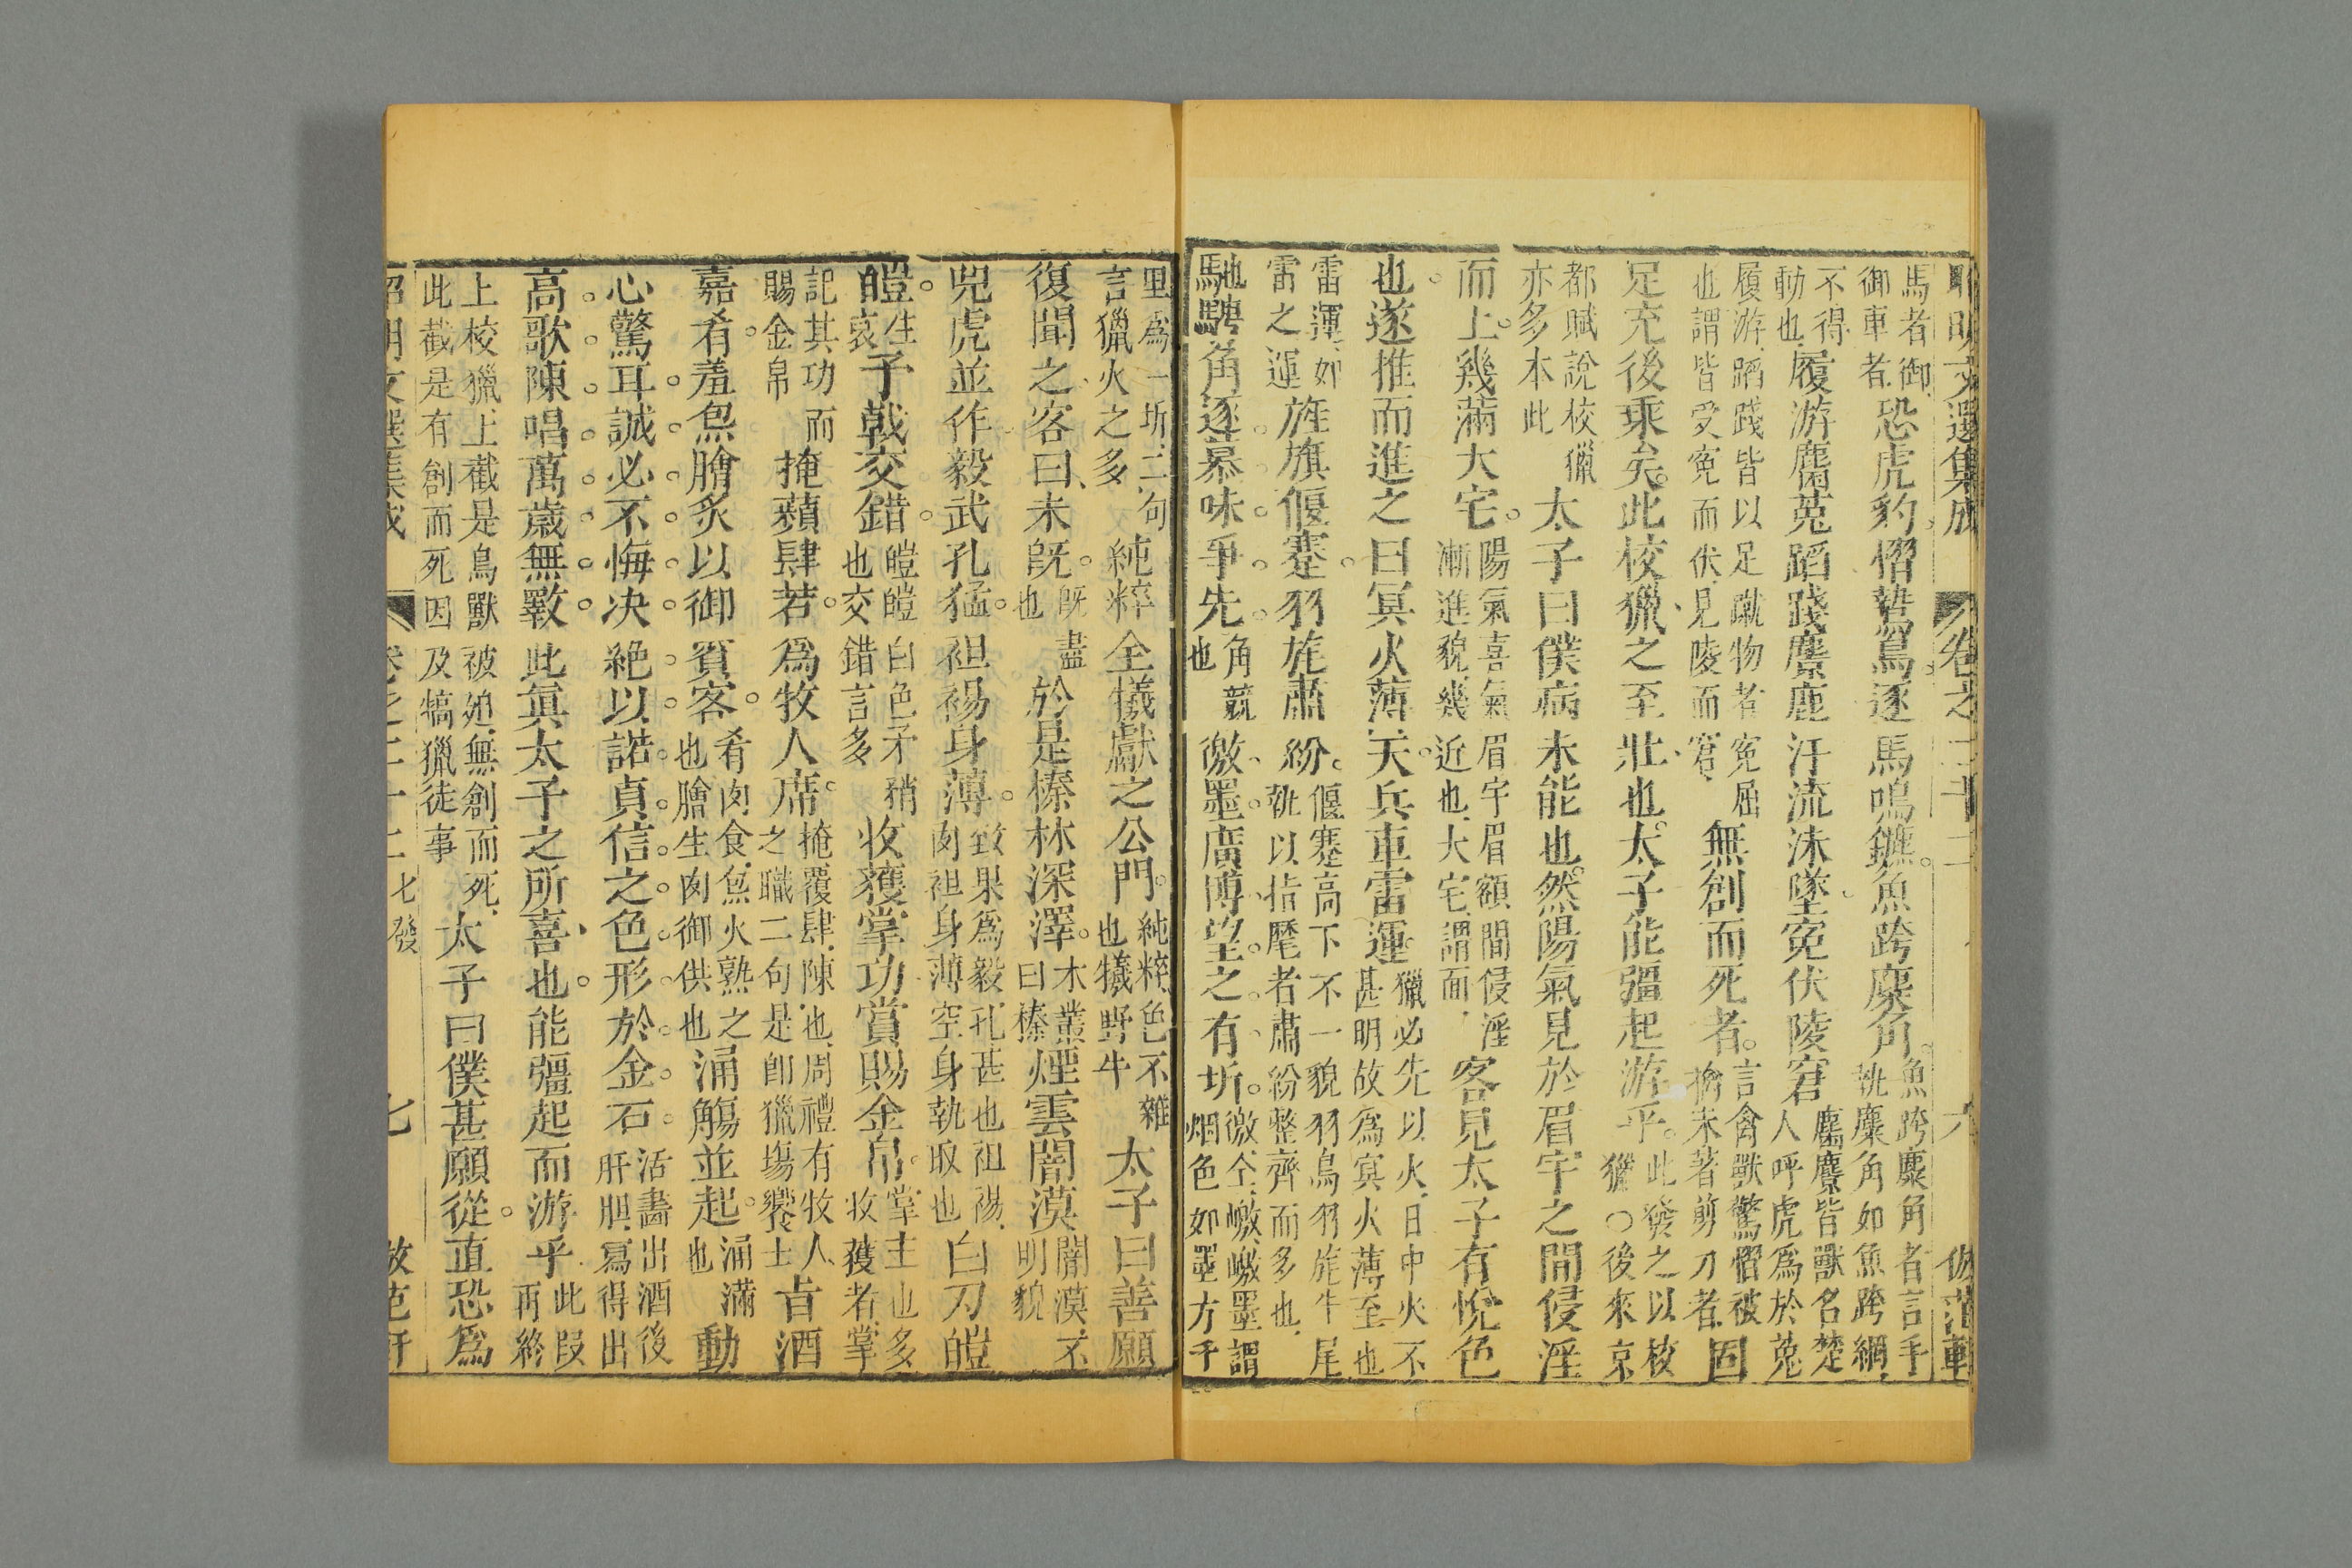 昭明文選集成 卷之二十二 六 倣范軒
馬者御御車者恐虎豹慴鷙鳥逐馬鳴鑣魚跨麋角魚跨麋角者言手執麋角如魚跨網
不得動也履游麕兎蹈踐麖鹿汗流沫墜寃伏陵窘麕麖皆獸名楚人呼虎爲於菟
履游蹈踐皆以足蹴物者寃屈也謂皆受寃而伏見陵而窘無創而死者言禽獸驚慴被擒未著剪刀者固
足充後乘矣此校獵之至壯也太子能彊起游乎此發之以校獵〇後來京
都賦說校獵亦多本此太子曰僕病未能也然陽氣見於眉宇之間侵淫
而上幾滿大宅陽氣喜氣眉宇眉額間侵淫漸進貌幾近也大宅謂面客見太子有悅色
也遂推而進之曰冥火薄天兵車雷運獵必先以火日中火不甚明故爲冥火薄至也
雷運如雷之運旌旗偃蹇羽旄肅紛偃蹇高下不一貌羽鳥羽旄牛尾執以指麾者肅紛整齊而多也
馳騁角逐慕味爭先角競也徼墨廣博望之有圻徼仝皦皦墨謂烟色如墨方千
里爲一圻二句言獵火之多純粹全犧獻之公門純粹色不雜也犧野牛太子曰善願
復聞之客曰未旣旣盡也於是榛林深澤木叢曰榛煙雲闇漠闇漠不明貌
兕虎並作毅武孔猛袒裼身薄致果爲毅孔甚也袒裼肉袒身薄空身執取也白刃皚
皚矛戟交錯皚皚白色矛矟也交錯言多收獲掌功賞賜金帛掌主也多收獲者掌
記其功而賜金帛掩蘋肆若爲牧人席掩覆肆陳也周禮有牧人之職二句是卽獵塲饗士旨酒
嘉肴羞炰膾炙以御賓客肴肉食炰火熟之也膾生肉御供也涌觴並起涌滿也動
心驚耳誠必不悔决絶以諾貞信之色形於金石活畫出酒後肝胆寫得出
高歌陳唱萬歲無斁此眞太子之所喜也能彊起而游乎此叚再終
上校獵上截是鳥獸被廹無創而死此截是有創而死因及犒獵徒事太子曰僕甚願從直恐爲
昭明文選集成 卷之二十二七發 七 倣范軒